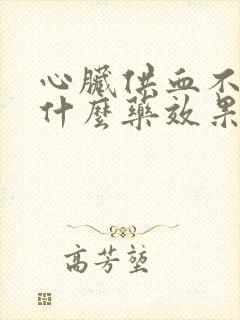 心臟供血不
什麼藥效果
高芳堃